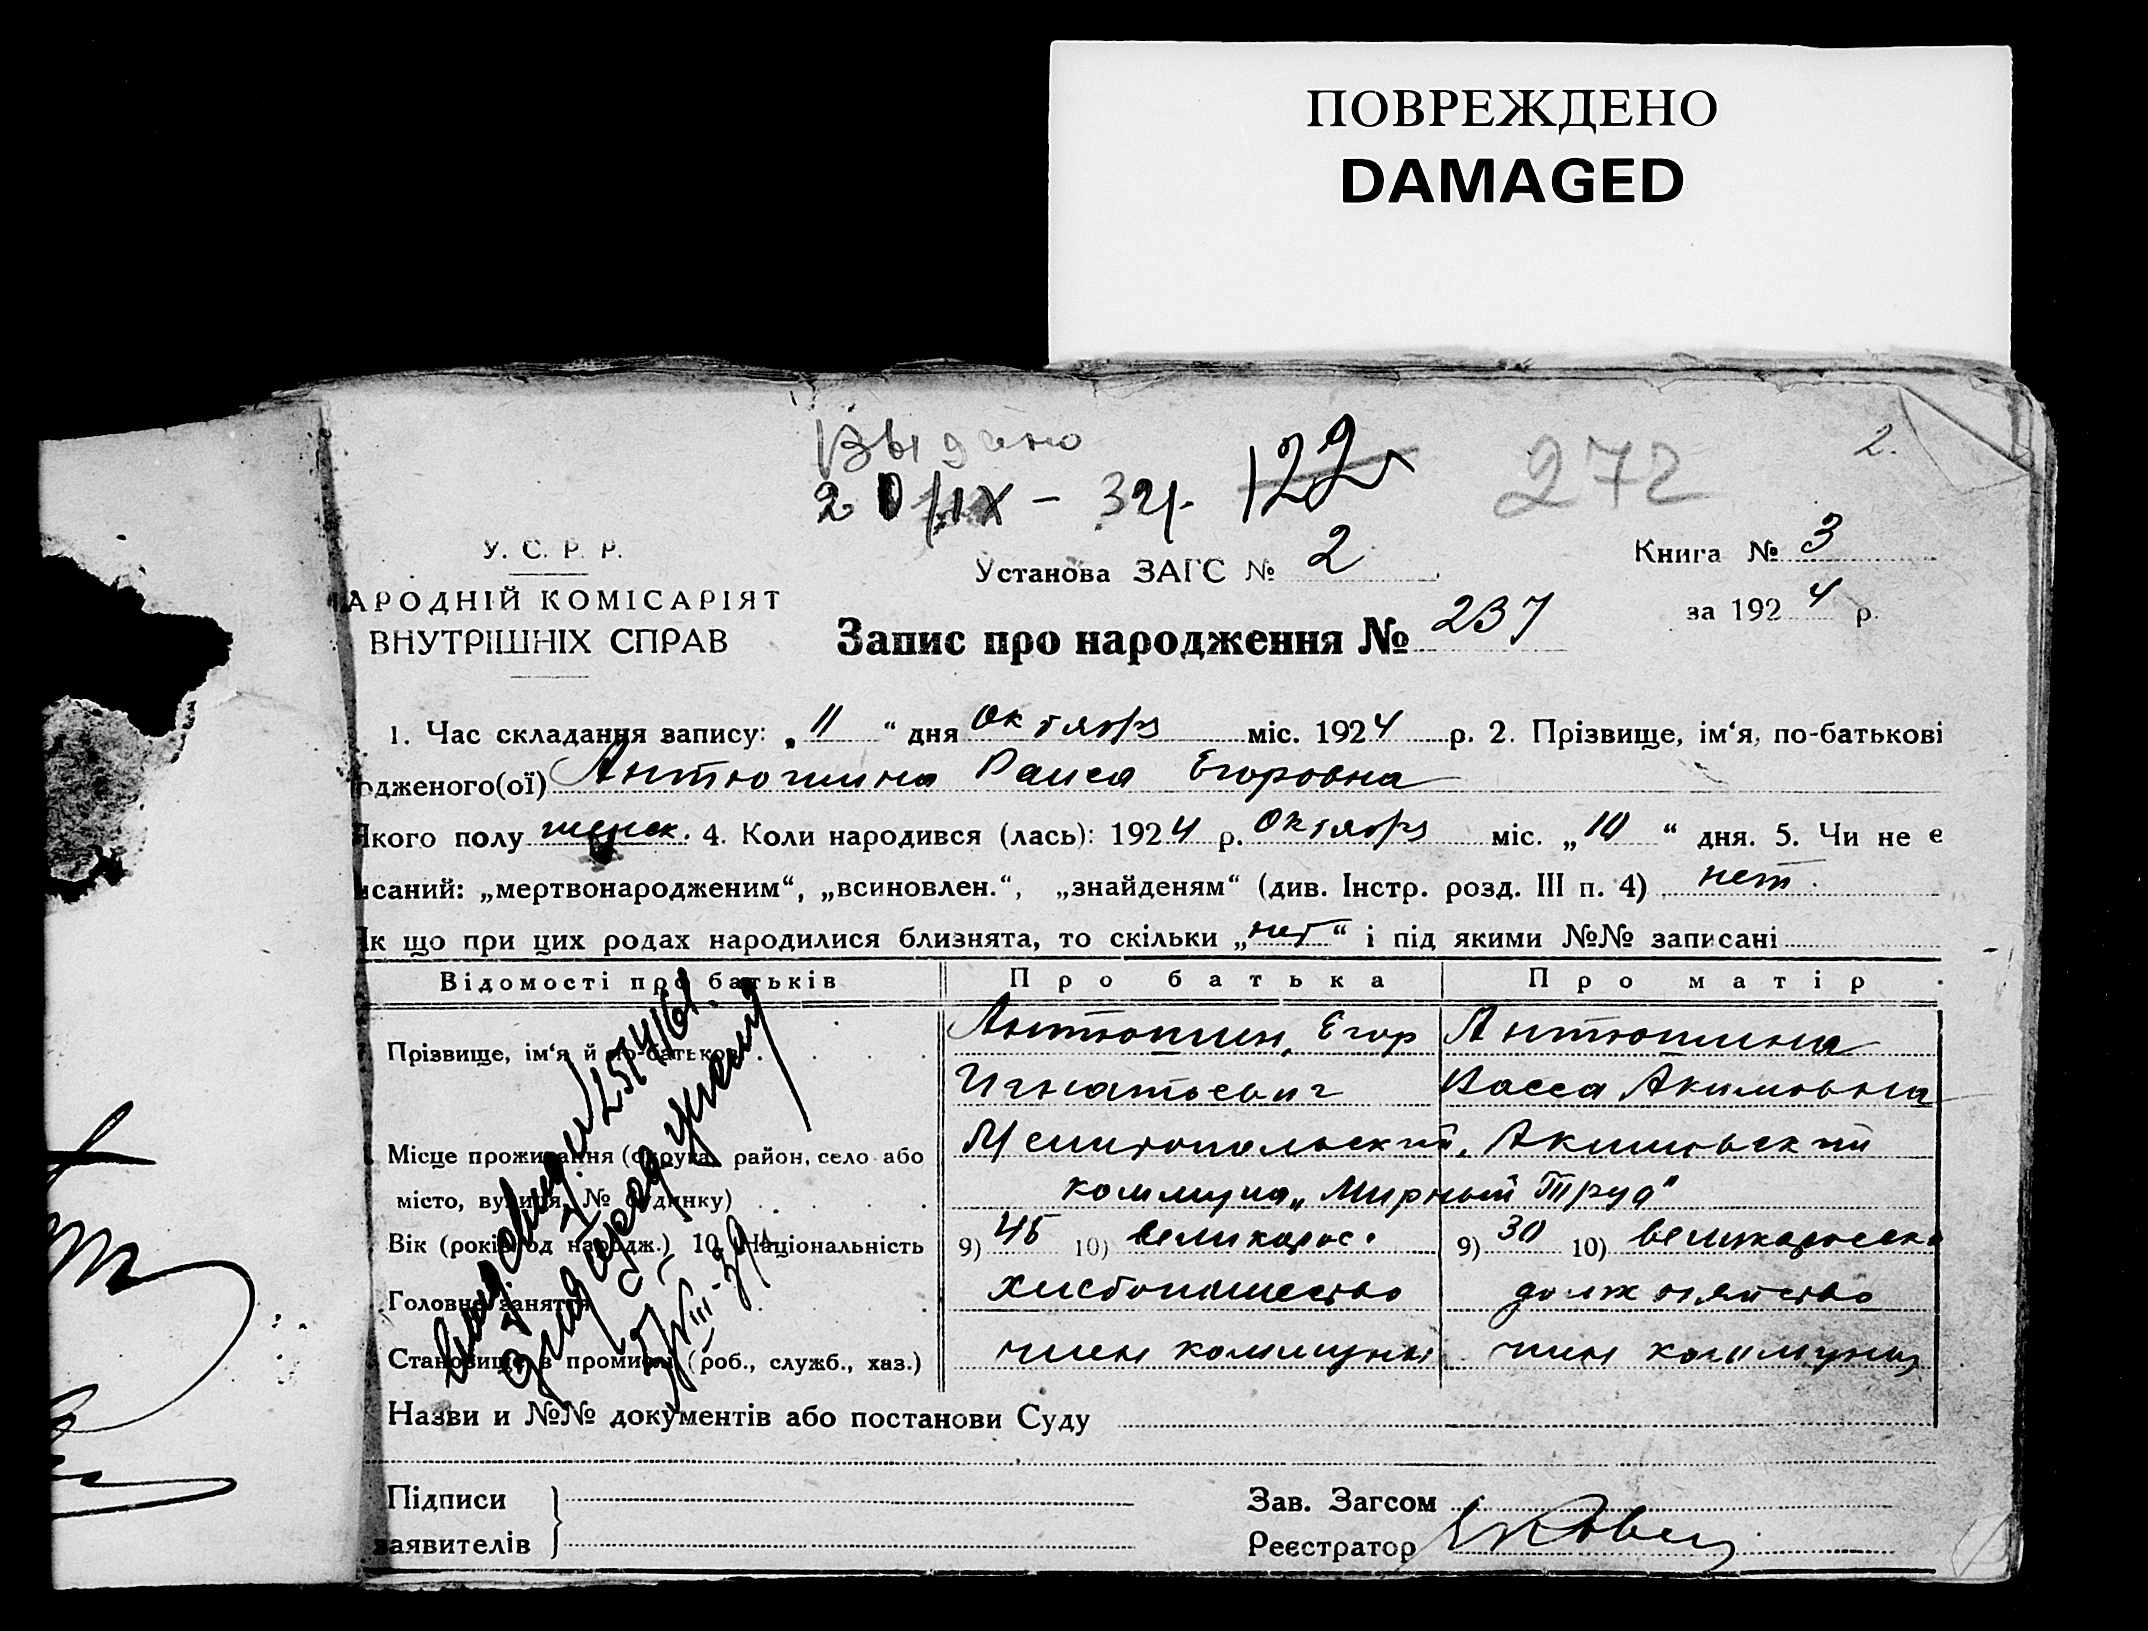 ПОВРЕЖДЕНО
DAMAGED
Выдано
20/IX - 32г. 122
272
2.
У. С. Р. Р.
АРОДНІЙ КОМІСАРІЯТ
ВНУТРІШНІХ СПРАВ
Установа ЗАГС № 2
Книга № 3
за 1924 р.
Запис про народження № 237
1. Час складання запису: „11“ дня Октября міс. 1924 р. 2. Прізвище, ім‘я, по-батькові
одженого(ої) Антюшина Раиса Егоровна
Якого полу женск. 4. Коли народився (лась): 1924 р. Октября міс. „10“ дня. 5. Чи не є
исаний: „мертвонародженим“, „всиновлен.“, „знайденям“ (див. Інстр. розд. III п. 4) нет.
Як що при цих родах народилися близнята, то скільки „нет“ і під якими №№ записані
Відомості про батьків Про батька Про матір
Прізвище, ім‘я й по-батькові Антюшин, Егор Антюшина
Игнатьевич Васса Акимовна
Місце проживання (округа, район, село або Мелитопольский, Акимовский
місто, вулиця, № будинку) коммуна „Мирный Труд“
Вік (років од народж.) 10. Національність 9) 45 10) великорос. 9) 30 10) великоросска
Головне заняття хлебопашество домохозяйство
Становище в промислі (роб., служб., хаз.) член коммуны член коммуны
25/4/61.
5/VIII-39г.
Назви и №№ документів або постанови Суду
Підписи
заявителів
Зав. Загсом
Реєстратор